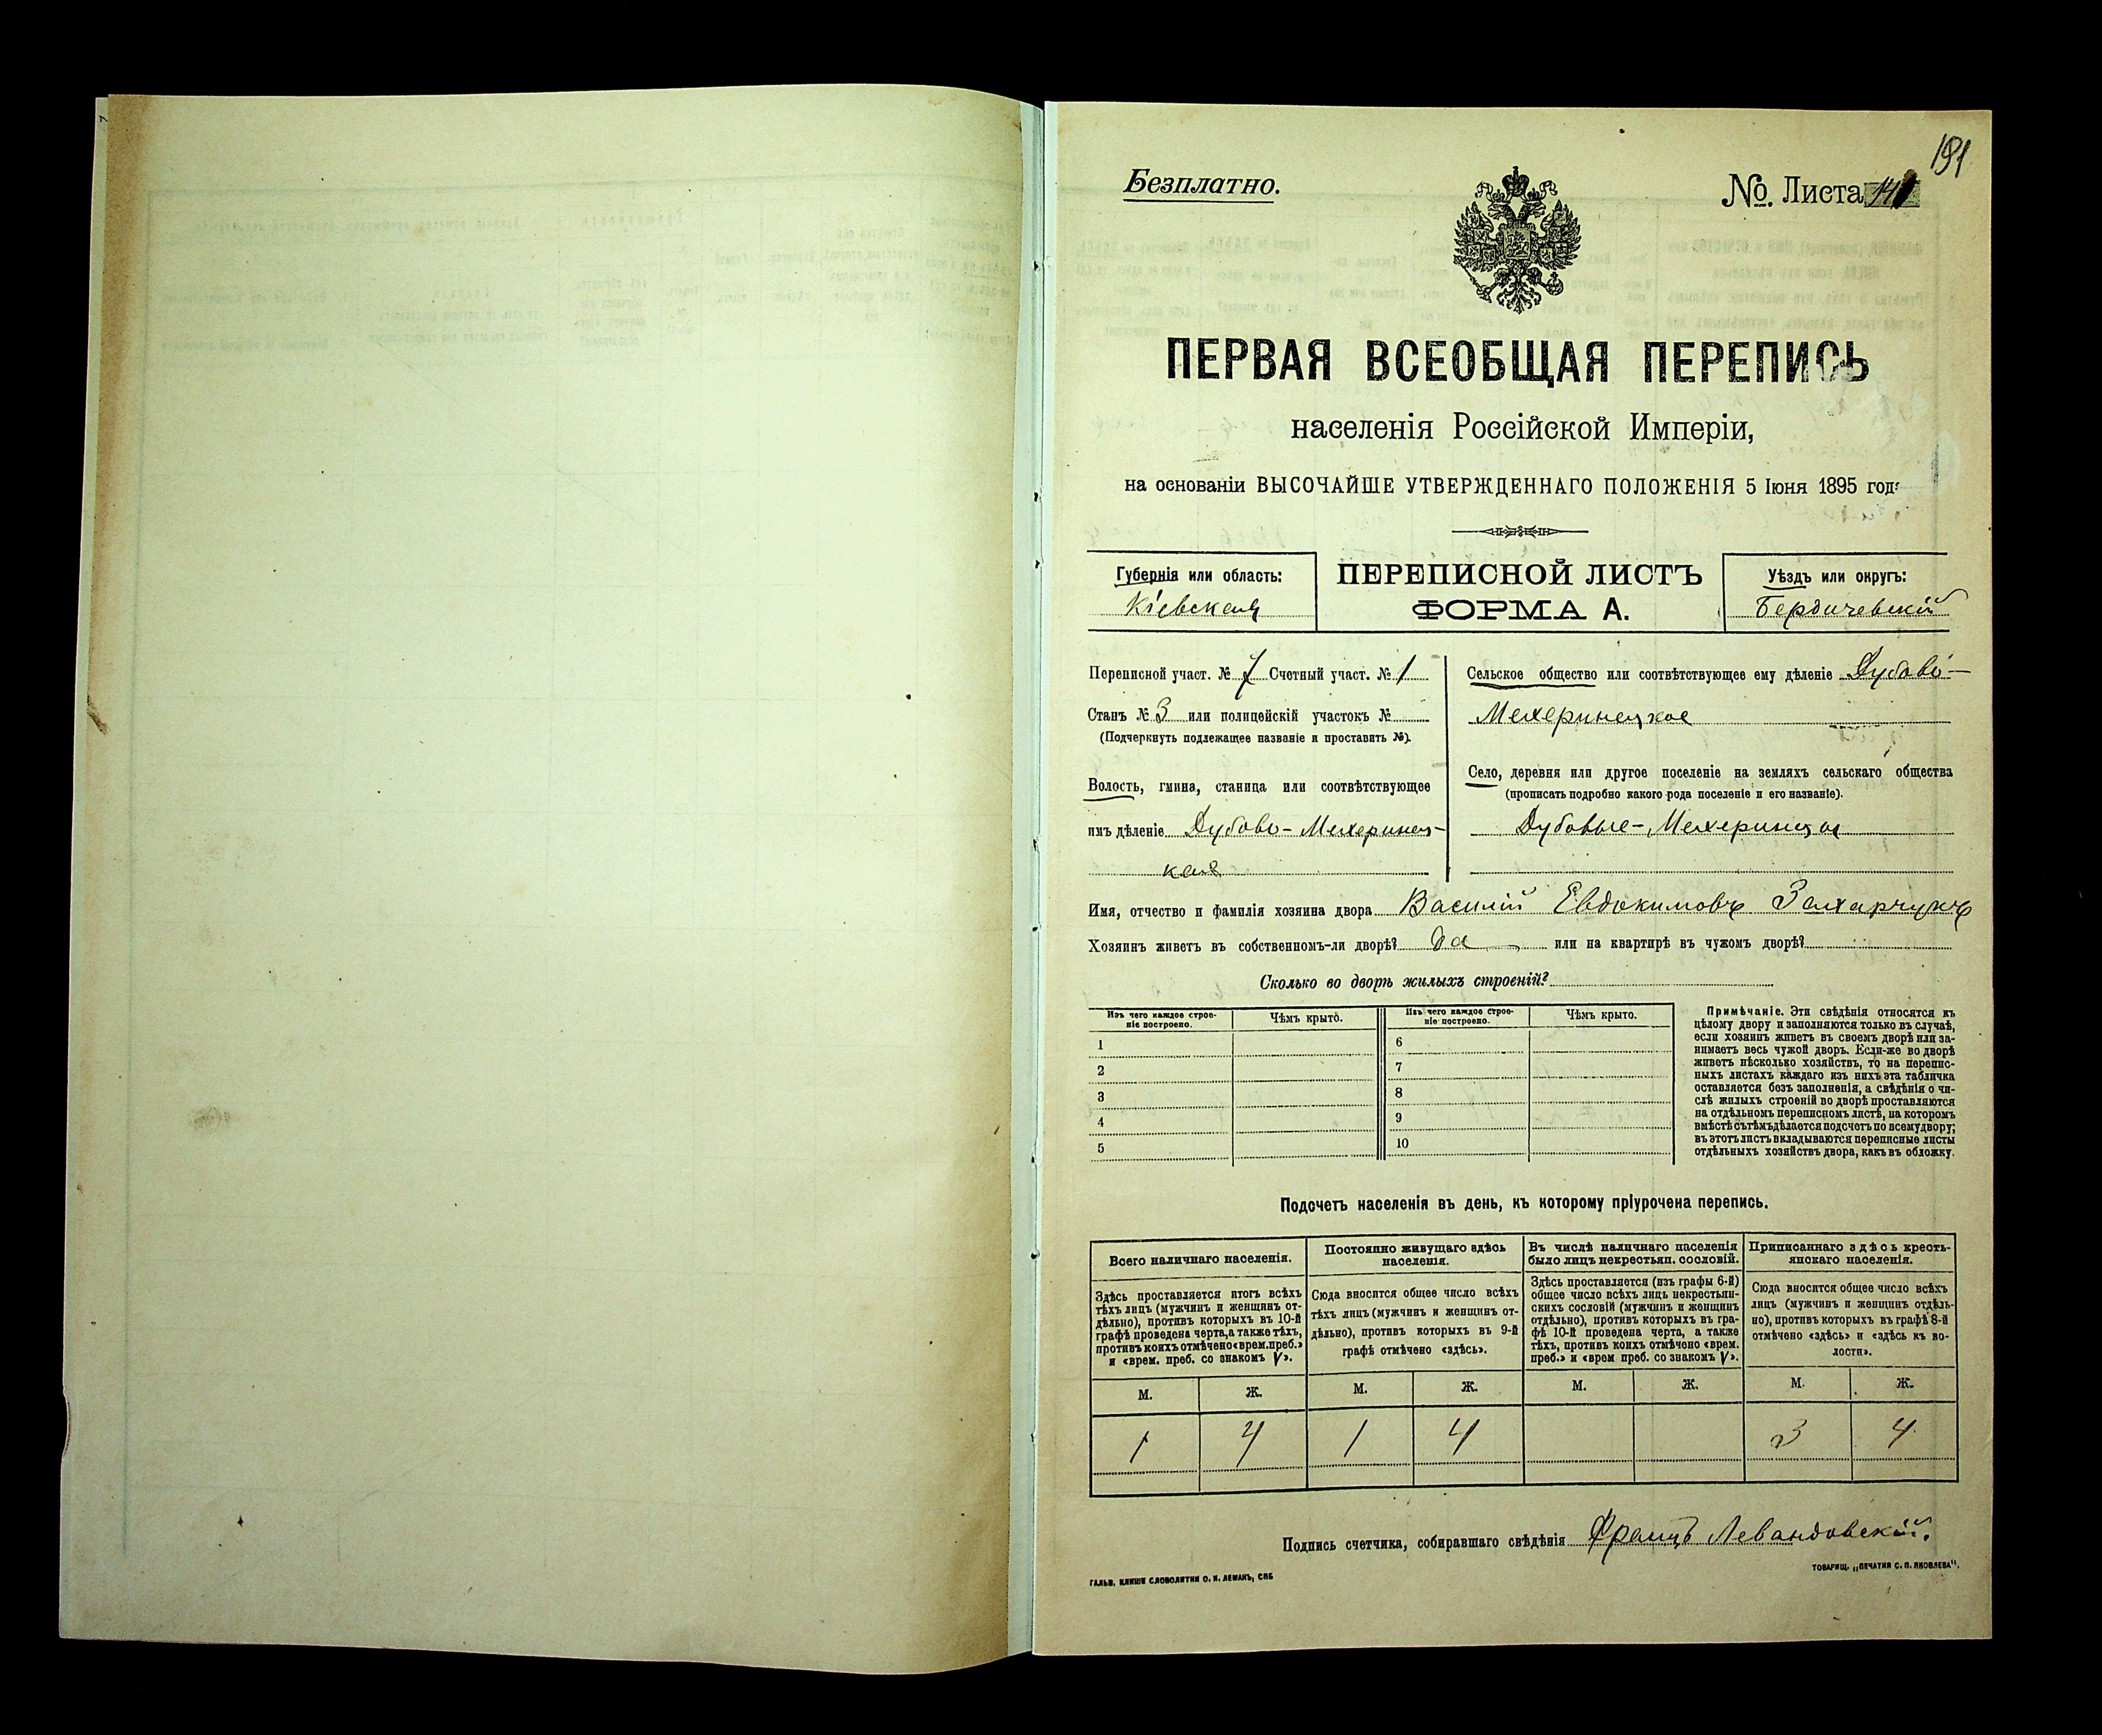 191
Безплатно.
№. Листа 141
ПЕРВАЯ ВСЕОБЩАЯ ПЕРЕПИСЬ
населенія Россійской Имперіи,
на основаніи ВЫСОЧАЙШЕ УТВЕРЖДЕННАГО ПОЛОЖЕНІЯ 5 Іюня 1895 год
Губернія или область:
Кіевская
ПЕРЕПИСНОЙ ЛИСТЪ
ФОРМА А.
Уѣздъ или округъ:
Бердичевскій
Переписной участ. № 7 Счетный участ. № 1
Станъ № 3 или полицейскій участокъ №
(Подчеркнуть подлежащее названіе и проставить №).
Волость, гмина, станица или соотвѣтствующее
имъ дѣленіе Дубово-Махеринец-
кая
Сельское общество или соотвѣтствующее ему дѣленіе Дубово-
Махеринецкое
Село, деревня или другое поселеніе на земляхъ сельскаго общества
(прописать подробно какого рода поселеніе и его названіе).
Дубовые-Махеринцы
Имя, отчество и фамилія хозяина двора Василій Евдокимовъ Захарчукъ
Хозяинъ живетъ въ собственномъ-ли дворѣ? да или на квартирѣ въ чужомъ дворѣ?
Сколько во дворѣ жилыхъ строеній?
Изъ чего каждое строе-
ніе построено.
Чѣмъ крыто.
Изъ чего каждое строе-
ніе построено.
Чѣмъ крыто.
1
2
3
4
5
6
7
8
9
10
Примѣчаніе. Эти свѣдѣнія относятся къ
цѣлому двору и заполняются только въ случаѣ,
если хозяинъ живетъ въ своемъ дворѣ или за-
нимаетъ весь чужой дворъ. Если-же во дворѣ
живетъ нѣсколько хозяйствъ, то на перепис-
ныхъ листахъ каждаго изъ нихъ эта табличка
оставляется безъ заполненія, а свѣдѣнія о чи-
слѣ жилыхъ строеній во дворѣ проставляются
на отдѣльномъ переписномъ листѣ, на которомъ
вмѣстѣ съ тѣмъ дѣлается подсчетъ по всему двору;
въ этотъ листъ вкладываются переписные листы
отдѣльныхъ хозяйствъ двора, какъ въ обложку.
Подсчетъ населенія въ день, къ которому пріурочена перепись.
Всего наличнаго населенія.
Здѣсь проставляется итогъ всѣхъ
тѣхъ лицъ (мужчинъ и женщинъ от-
дѣльно), противъ которыхъ въ 10-й
графѣ проведена черта, а также тѣхъ,
противъ коихъ отмѣчено «врем. преб.»
и «врем. преб. со знакомъ V».
Постоянно живущаго здѣсь
населенія.
Сюда вносится общее число всѣхъ
тѣхъ лицъ (мужчинъ и женщинъ от-
дѣльно), противъ которыхъ въ 9-й
графѣ отмѣчено «здѣсь».
Въ числѣ наличнаго населенія
было лицъ некрестьян. сословій.
Здѣсь проставляется (изъ графы 6-й)
общее число всѣхъ лицъ некрестьян-
скихъ сословій (мужчинъ и женщинъ
отдѣльно), противъ которыхъ въ гра-
фѣ 10-й проведена черта, а также
тѣхъ, противъ коихъ отмѣчено «врем.
преб.» и «врем преб. со знакомъ V».
Приписаннаго здѣсь кресть-
янскаго населенія.
Сюда вносится общее число всѣхъ
лицъ (мужчинъ и женщинъ отдѣль-
но), противъ которыхъ въ графѣ 8-й
отмѣчено «здѣсь» и «здѣсь къ во-
лости».
М. Ж. М. Ж. М. Ж. М. Ж.
1 4 1 4 3 4
Подпись счетчика, собиравшаго свѣдѣнія Францъ Левандовскій.
ГАЛЬВ. КЛИШЕ СЛОВОЛИТНИ О. И. ЛЕМАНЪ, СПБ
ТОВАРИЩ. „ПЕЧАТНЯ С. П. ЯКОВЛЕВА".